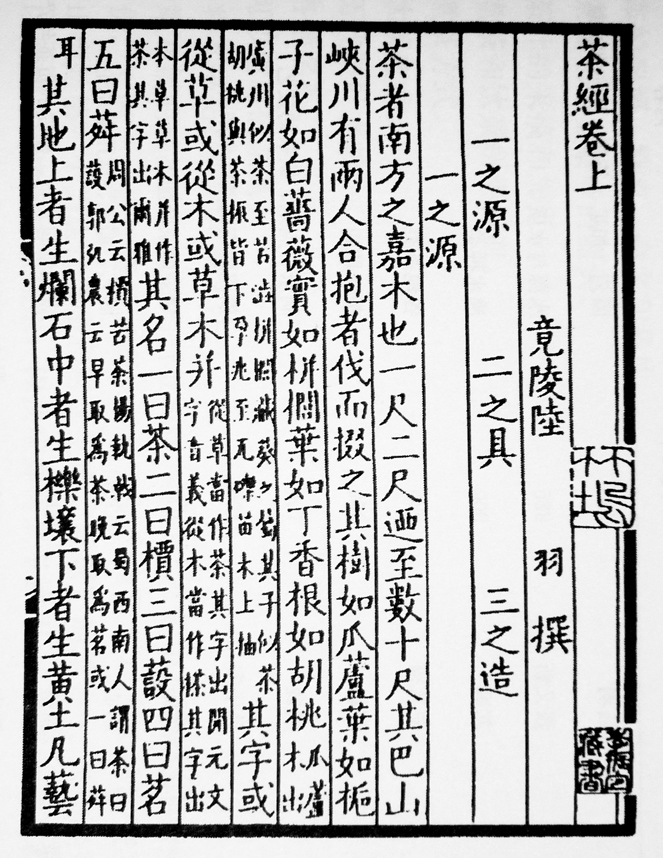 茶經卷上
竟陵陸 羽 撰
一之源 二之具 三之造
一之源
茶者南方之嘉木也一尺二尺廼至數十尺其巴山
峽川有兩人合抱者伐而掇之其樹如瓜蘆葉如梔
子花如白薔薇實如栟櫚葉如丁香根如胡桃瓜蘆木出
廣州似茶至苦澁栟櫚蒲葵之屬其子似茶胡桃與茶根皆下孕兆至瓦礫苗木上抽其字或
從草或從木或草木并從草當作茶其字出開元文字音義從木當作搽其字出
本草草木并作荼其字出爾雅其名一曰茶二曰檟三曰蔎四曰茗
五曰荈周公云檟苦荼揚執戟云蜀西南人謂茶曰蔎郭弘農云早取為茶晚取為茗或一曰荈
耳其地上者生爛石中者生櫟壤下者生黃土凡藝